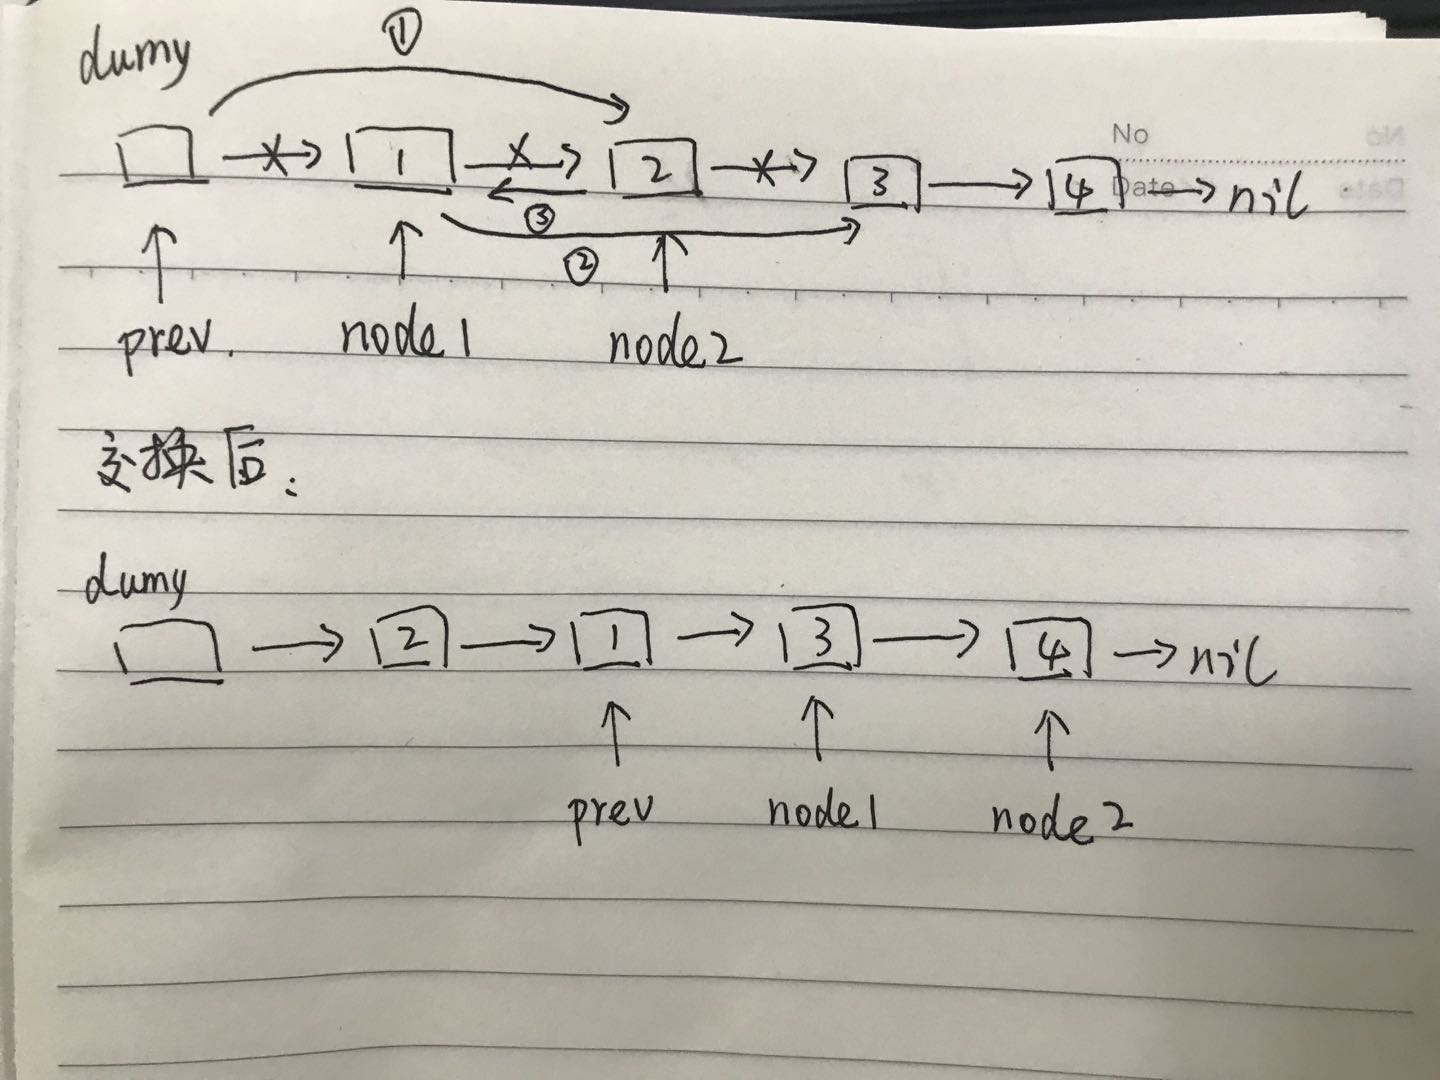 dumy
①
1 2 3 4 nil
No
Date
③
②
prev. node1 node2
交换后:
dumy
2 1 3 4 nil
prev node1 node2